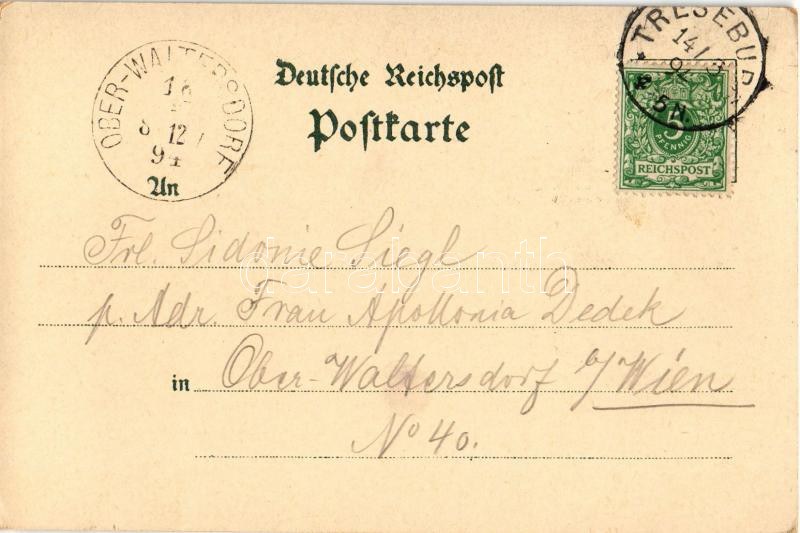 Deutsche Reichspost
Postkarte
OBER-WALTERSDORF
12
94
TRESEBUR
14/8
5 N.
5
PFENNIG
REICHSPOST
An
Frl. Sidonie Siegl
p. Adr. Frau Apollonia Dedek
in Ober-Waltersdorf b/Wien
No 40.
darabanth